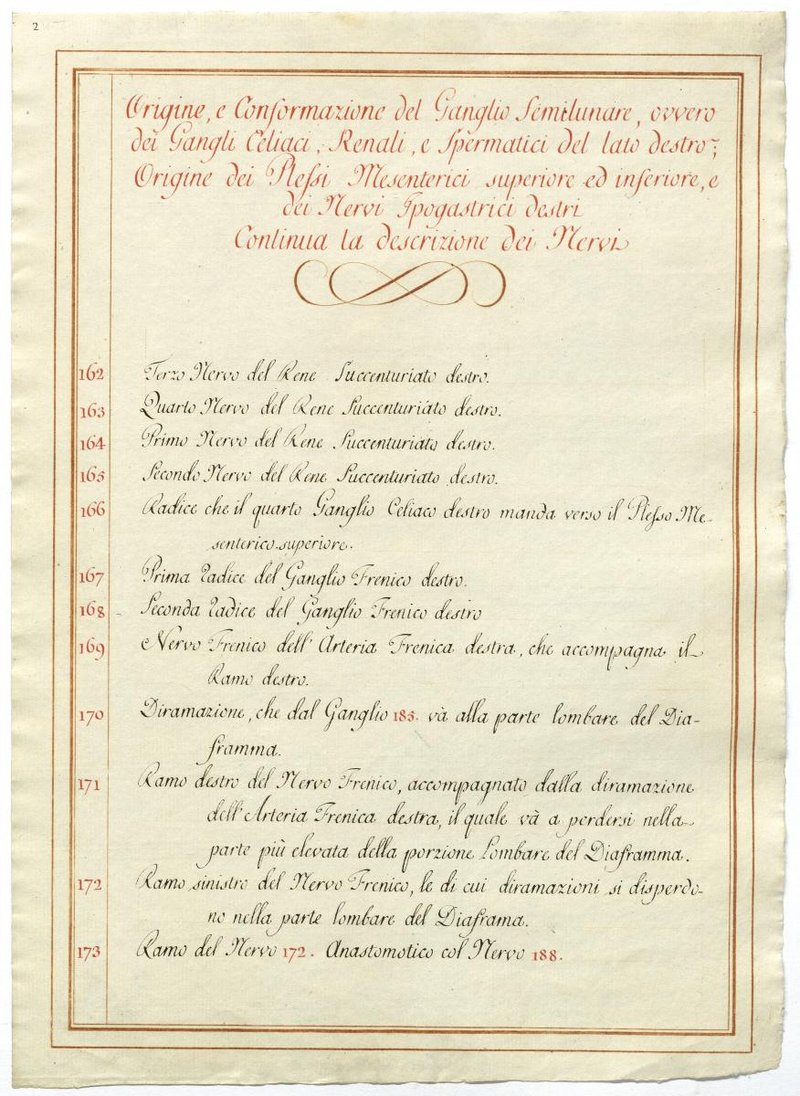 2
Origine, e Conformazione del Ganglio Semilunare, ovvero
dei Gangli Celiaci, Renali, e Spermatici del lato destro;
Origine dei Plessi Mesenterici superiore ed inferiore, e
dei Nervi Ipogastrici destri
Continua la descrizione dei Nervi
162 Terzo Nervo del Rene Succenturiato destro.
163 Quarto Nervo del Rene Succenturiato destro.
164 Primo Nervo del Rene Succenturiato destro.
165 Secondo Nervo del Rene Succenturiato destro.
166 Radice che il quarto Ganglio Celiaco destro manda verso il Plesso Me-
senterico superiore.
167 Prima radice del Ganglio Frenico destro.
168 Seconda radice del Ganglio Frenico destro
169 Nervo Frenico dell'Arteria Frenica destra, che accompagna il
Ramo destro.
170 Diramazione, che dal Ganglio 185. và alla parte lombare del Dia-
framma.
171 Ramo destro del Nervo Frenico, accompagnato dalla diramazione
dell'Arteria Frenica destra, il quale và a perdersi nella
parte più elevata della porzione Lombare del Diaframma.
172 Ramo sinistro del Nervo Frenico, le di cui diramazioni si disperdo-
no nella parte lombare del Diaframa.
173 Ramo del Nervo 172. Anastomotico col Nervo 188.